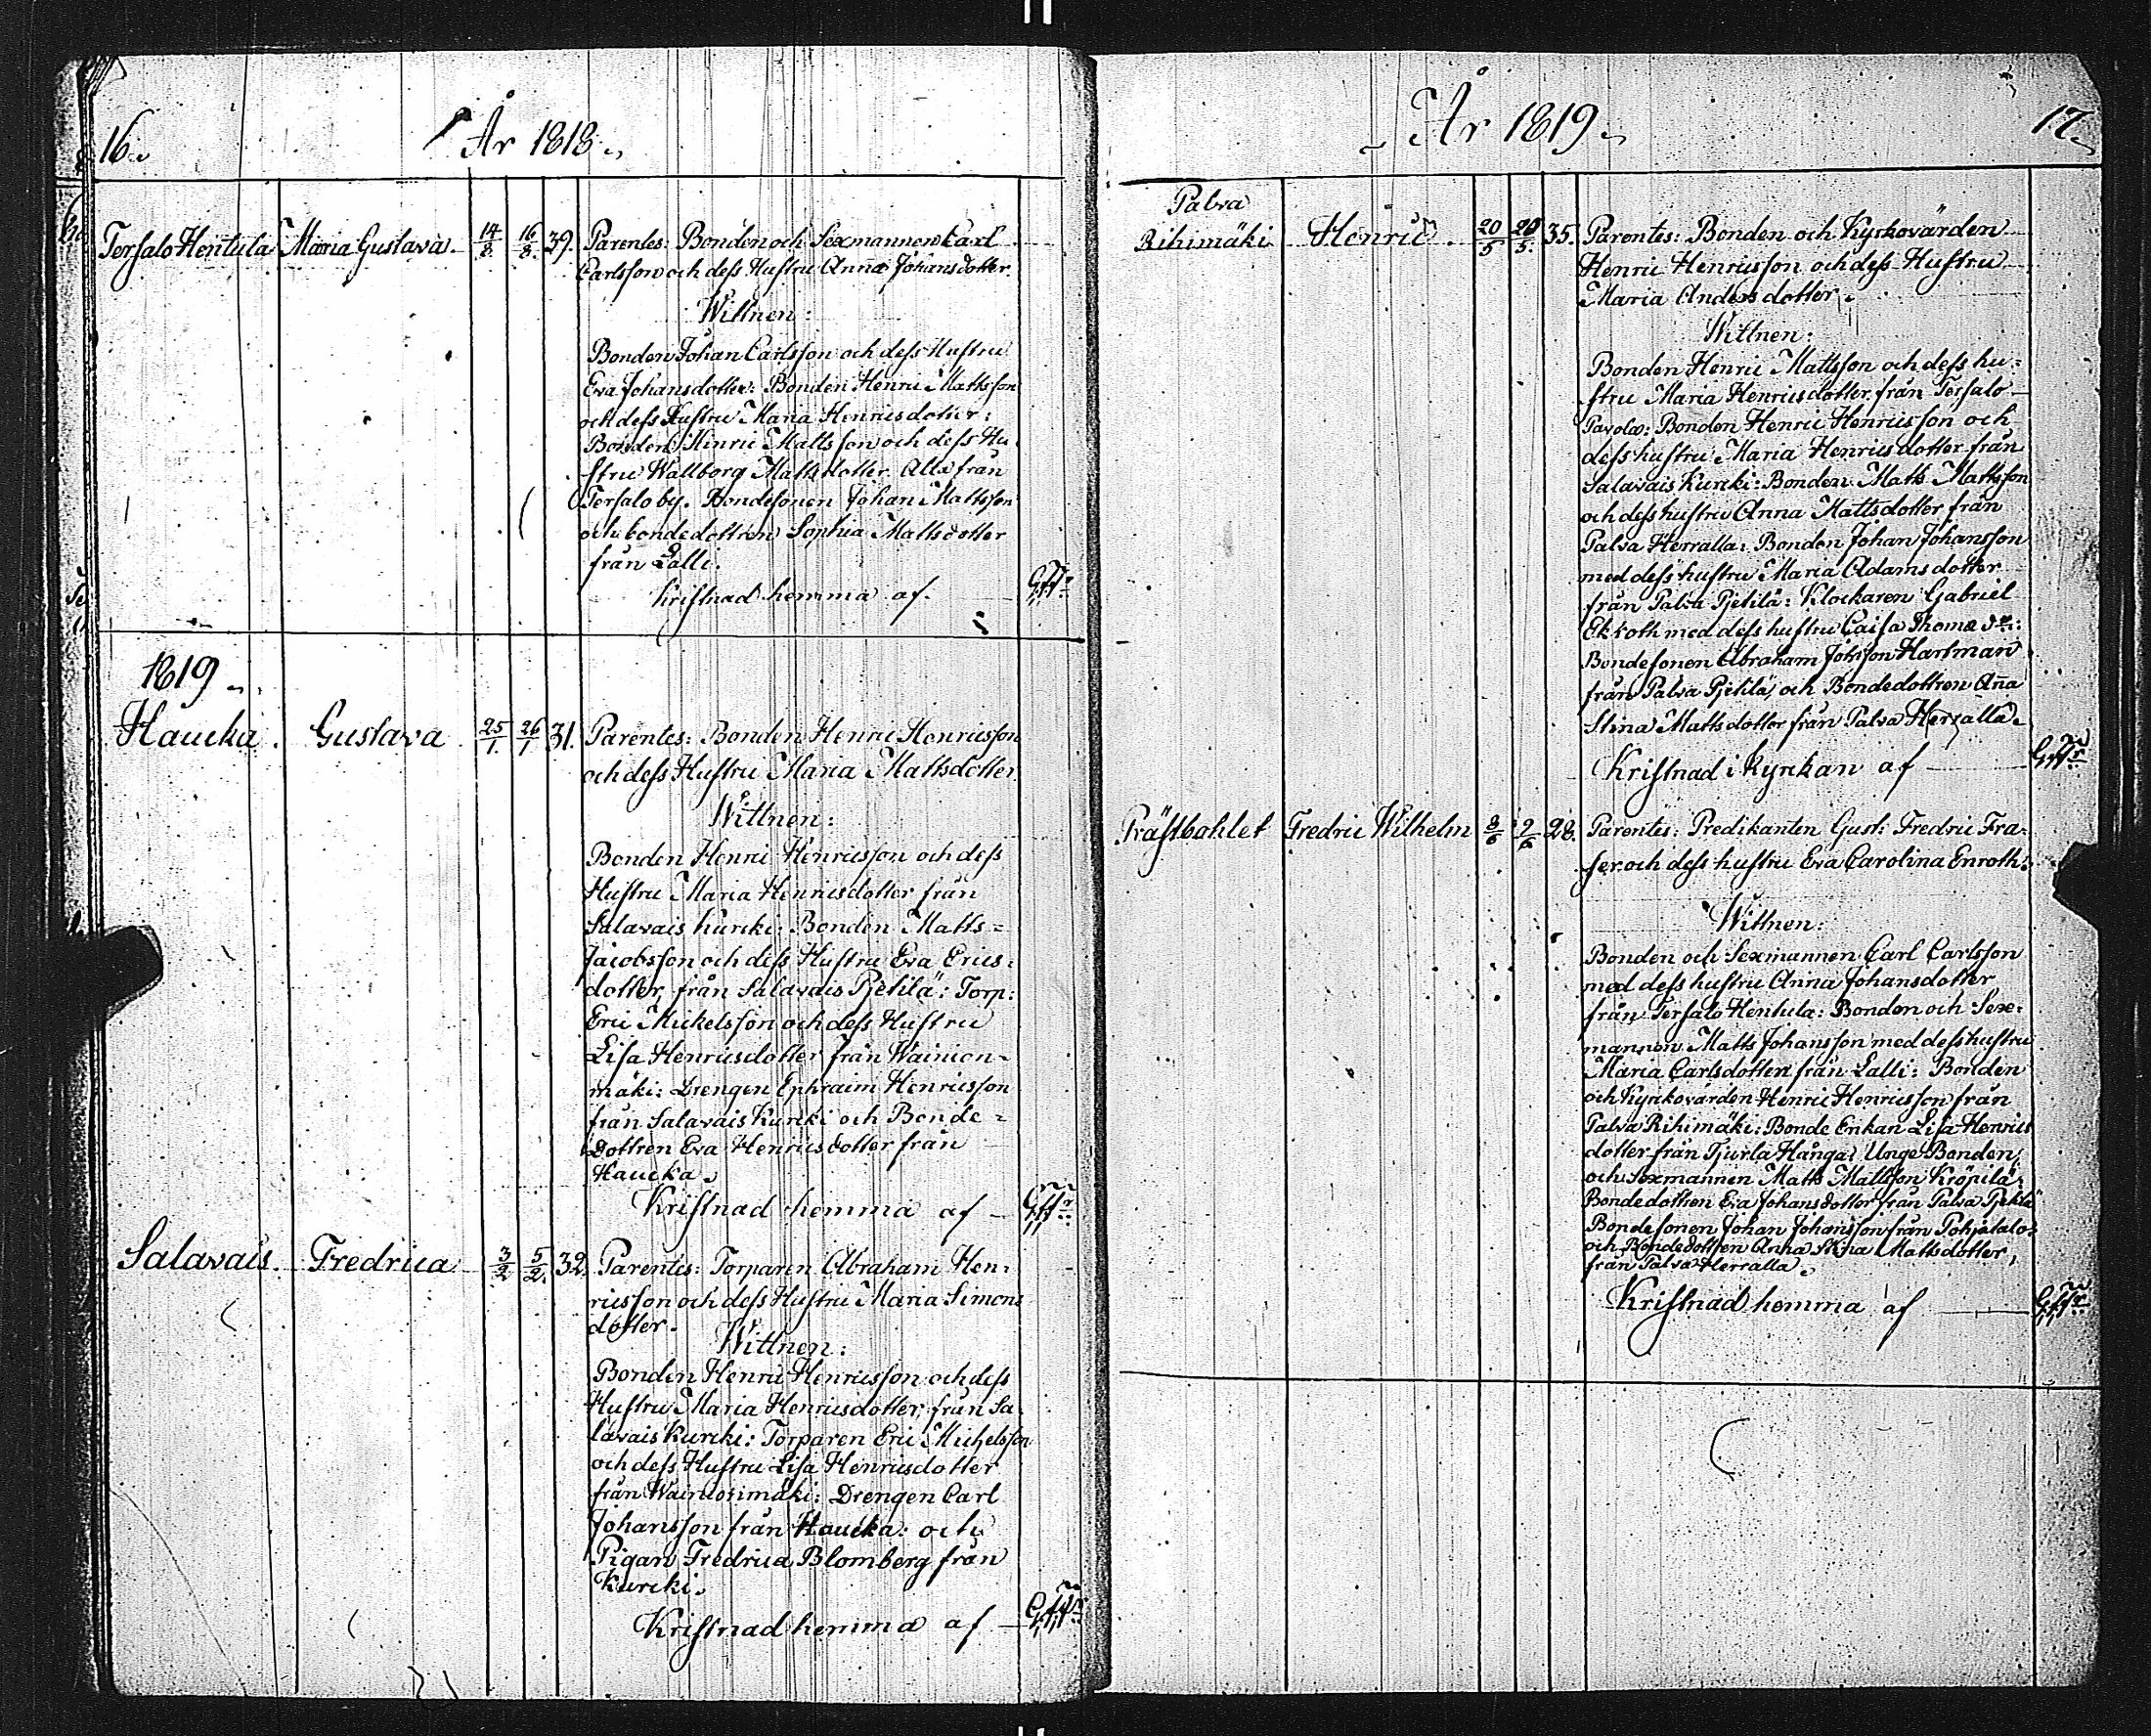 16.
År 1818.
Tersalo Hentula Maria Gustava 14/8. 16/8. 39. Parentes: Bonden och Sexmannen Carl
Carlsson och dess Hustru Anna Johansdotter.
Wittnen:
Bonden Johan Carlsson och dess Hustru
Eva Johansdotter: Bonden Henric Mattsson
och dess Hustru Maria Henricsdotter:
Bonden Hinric Mattsson och dess Hu-
stru Wallborg Mattsdotter. Alla från
Tersalo by. Bondesonen Johan Mattsson
och bondedottren Sophia Mattsdotter
från Lalli.
Kristnad hemma af. GFFr
1819.
Haucka. Gustava 25/1. 26/1 31. Parentes: Bonden Henric Henricsson
och dess Hustru Maria Mattsdotter
Wittnen:
Bonden Henric Henricsson och dess
Hustru Maria Henricsdotter från
Salavais kurcki: Bonden Matts=
Jacobsson och dess Hustru Eva Erics:
dotter, från Salavais Pjetilä: Torp:
Eric Mickelsson och dess Hustru
Lisa Henricsdotter från Wainion-
mäki: Drengen Ephraim Henricsson
från Salavais Kurcki och Bonde=
Dottren Eva Henricsdotter från
Haucka.
Kristnad hemma af – GFFr
Salavais. Fredrica 3/2 5/2. 32. Parentes: Torparen Abraham Hen-
ricsson och dess Hustru Maria Simons
dotter.
Wittnen:
Bonden Henric Henricsson och dess
Hustru Maria Henricsdotter, från Sa-
lavais Kurcki: Torparen Eric Michelsson
och dess Hustru Lisa Henricsdotter
från Wainionmäki: Drengen Carl
Johansson från Haucka: och
Pigan Fredrica Blomberg från
Kurcki.
Kristnad hemma af – GFFr
År 1819.
17.
Palva
Rihimäki Henric. 20/5 20/5. 35. Parentes: Bonden och Kyrkovärden
Henric Henricsson och dess Hustru
Maria Andersdotter.
Wittnen:
Bonden Henric Mattsson och dess hu=
stru Maria Henricsdotter från Tersalo
Pavola: Bonden Henric Henricsson och
dess hustru Maria Henricsdotter från
Salavais Kurcki: Bonden Matts Mattsson
och dess hustru Anna Mattsdotter från
Palva Herralla: Bonden Johan Johansson
med dess hustru Maria Adamsdotter
från Palva Pjetilä: Klockaren Gabriel
Ekroth med dess hustru Caisa Thomæ dr:
Bondesonen Abraham Johsson Hartman
från Palva Pjetilä, och Bondedottren Aña
Stina Mattsdotter från Palva Herralla.
Kristnad i kyrckan af GFFr
Prästbohlet Fredric Wilhelm 8/6 9/6 28. Parentes: Predikanten Gust: Fredric Fra-
ser och dess hustru Eva Carolina Enroth:
Wittnen:
Bonden och Sexmannen Carl Carlsson
med dess hustru Anna Johansdotter
från Tersalo Hentula: Bonden och Sex-
mannen Matts Johansson med dess hustru
Maria Carlsdotter från Lalli: Bonden
och Kyrkovärden Henric Henricsson från
Palva Rihimäki: Bonde Enkan Lisa Henrics
dotter från Tjurla Hånga: Unge Bonden
och Sexmannen Matts Mattsson Kröpilä:
Bondedottren Eva Johansdotter från Palva Pjetilä
Bondesonen Johan Johansson från Pohjatalo
och Bondedottren Anna Stina Mattsdotter,
från Palva Herralla.
Kristnad hemma af GFFr